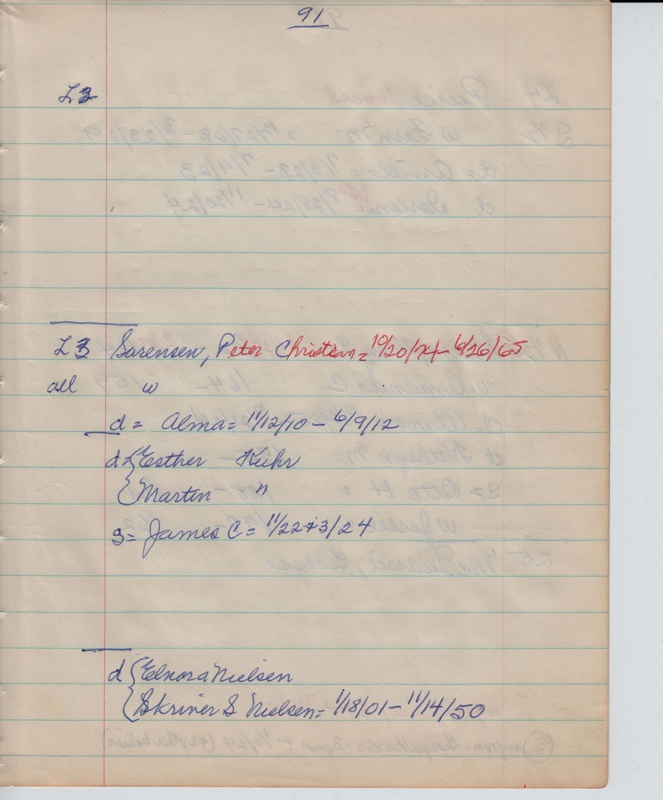 91
L3
L3 Sorensen, Peter Christian = 10/20/74 - 6/26/65
all w
d = Alma = 11/12/10 - 6/9/12
d { Esther Kuhr
{ Martin "
s = James C = 11/22 3/24
d { Elnora Nielsen
{ Skriver S Nielsen = 1/18/01 - 11/14/50